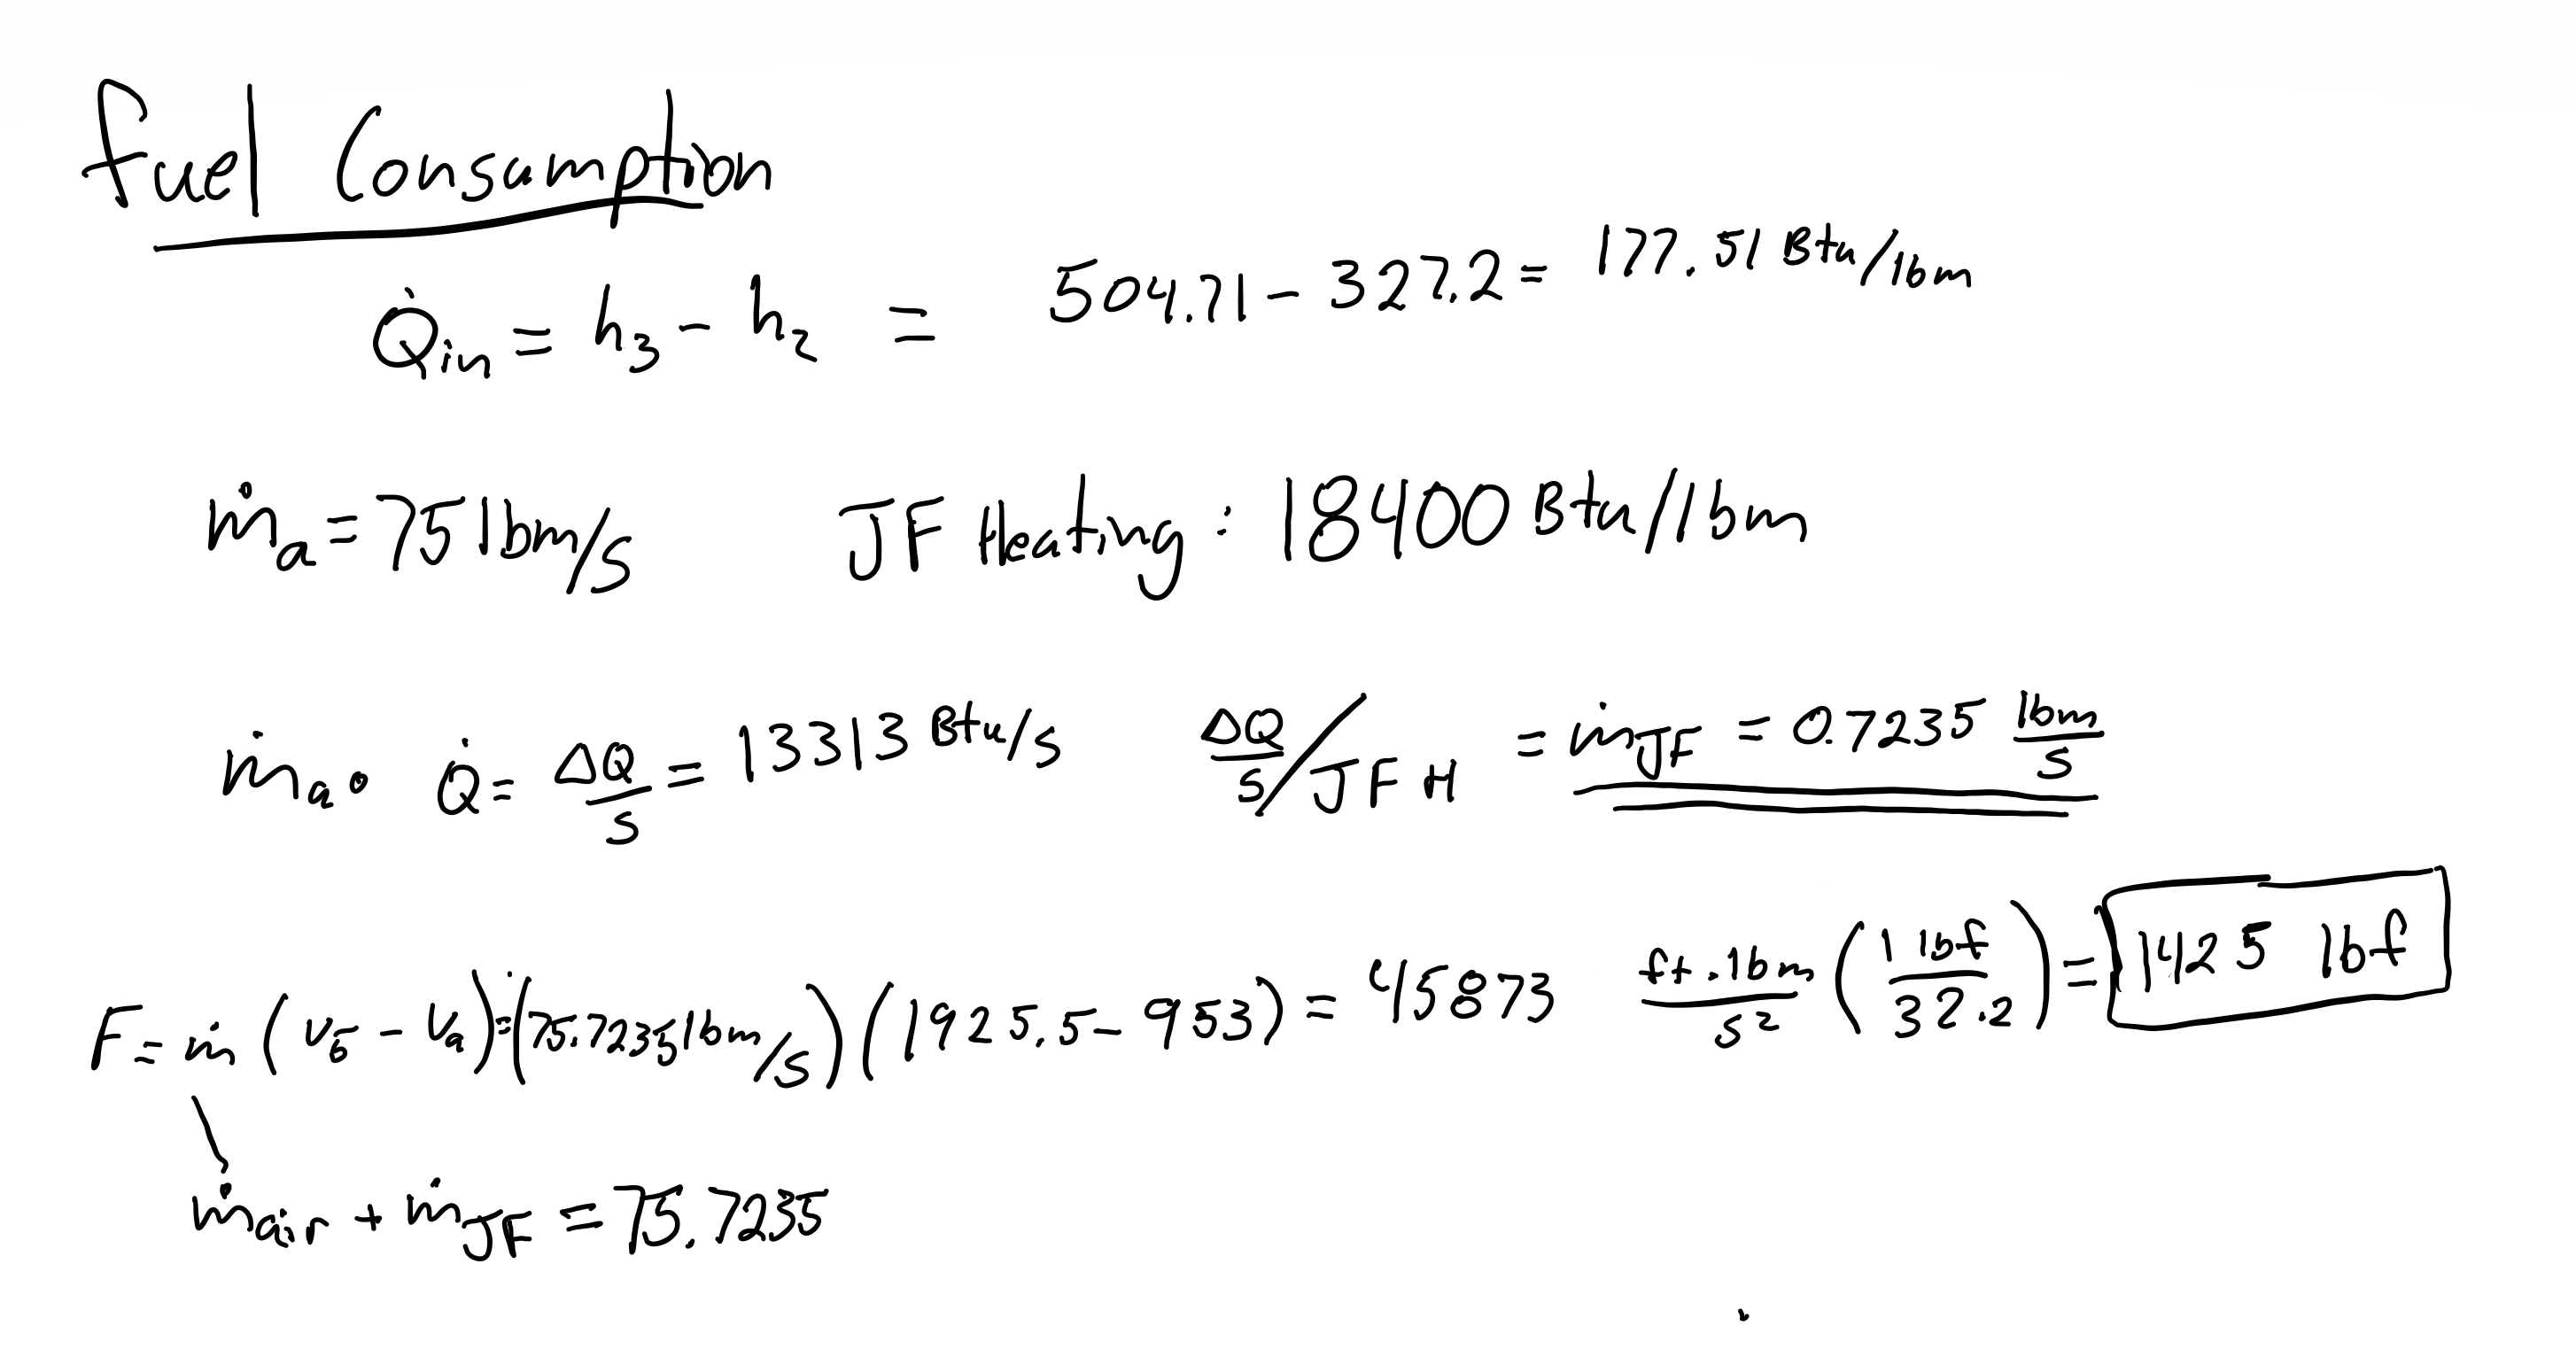 fuel Consumption
Q̇in = h3 - h2 = 504.71 - 327.2 = 177.51 Btu/lbm
ṁa = 75 lbm/s JF Heating : 18400 Btu/lbm
ṁa • Q̇ = ΔQ/s = 13313 Btu/s ΔQ/s / JFH = ṁJF = 0.7235 lbm/s
F = ṁ (v5 - Va) = (75.7235 lbm/s) (1925.5 - 953) = 45873 ft.lbm/s² (1 lbf/32.2) = 1425 lbf
ṁair + ṁJF = 75.7235